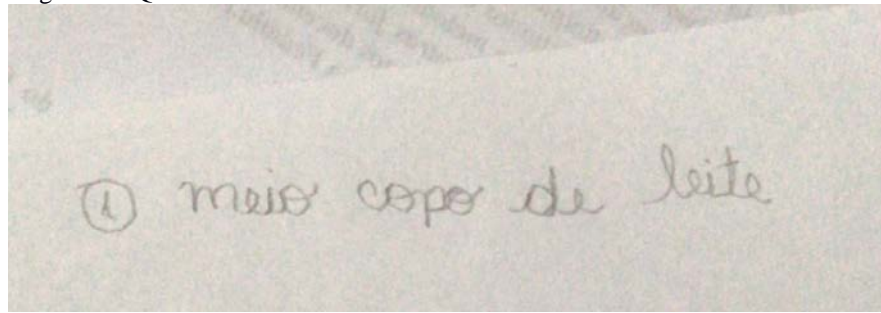 ① meio copo de leite